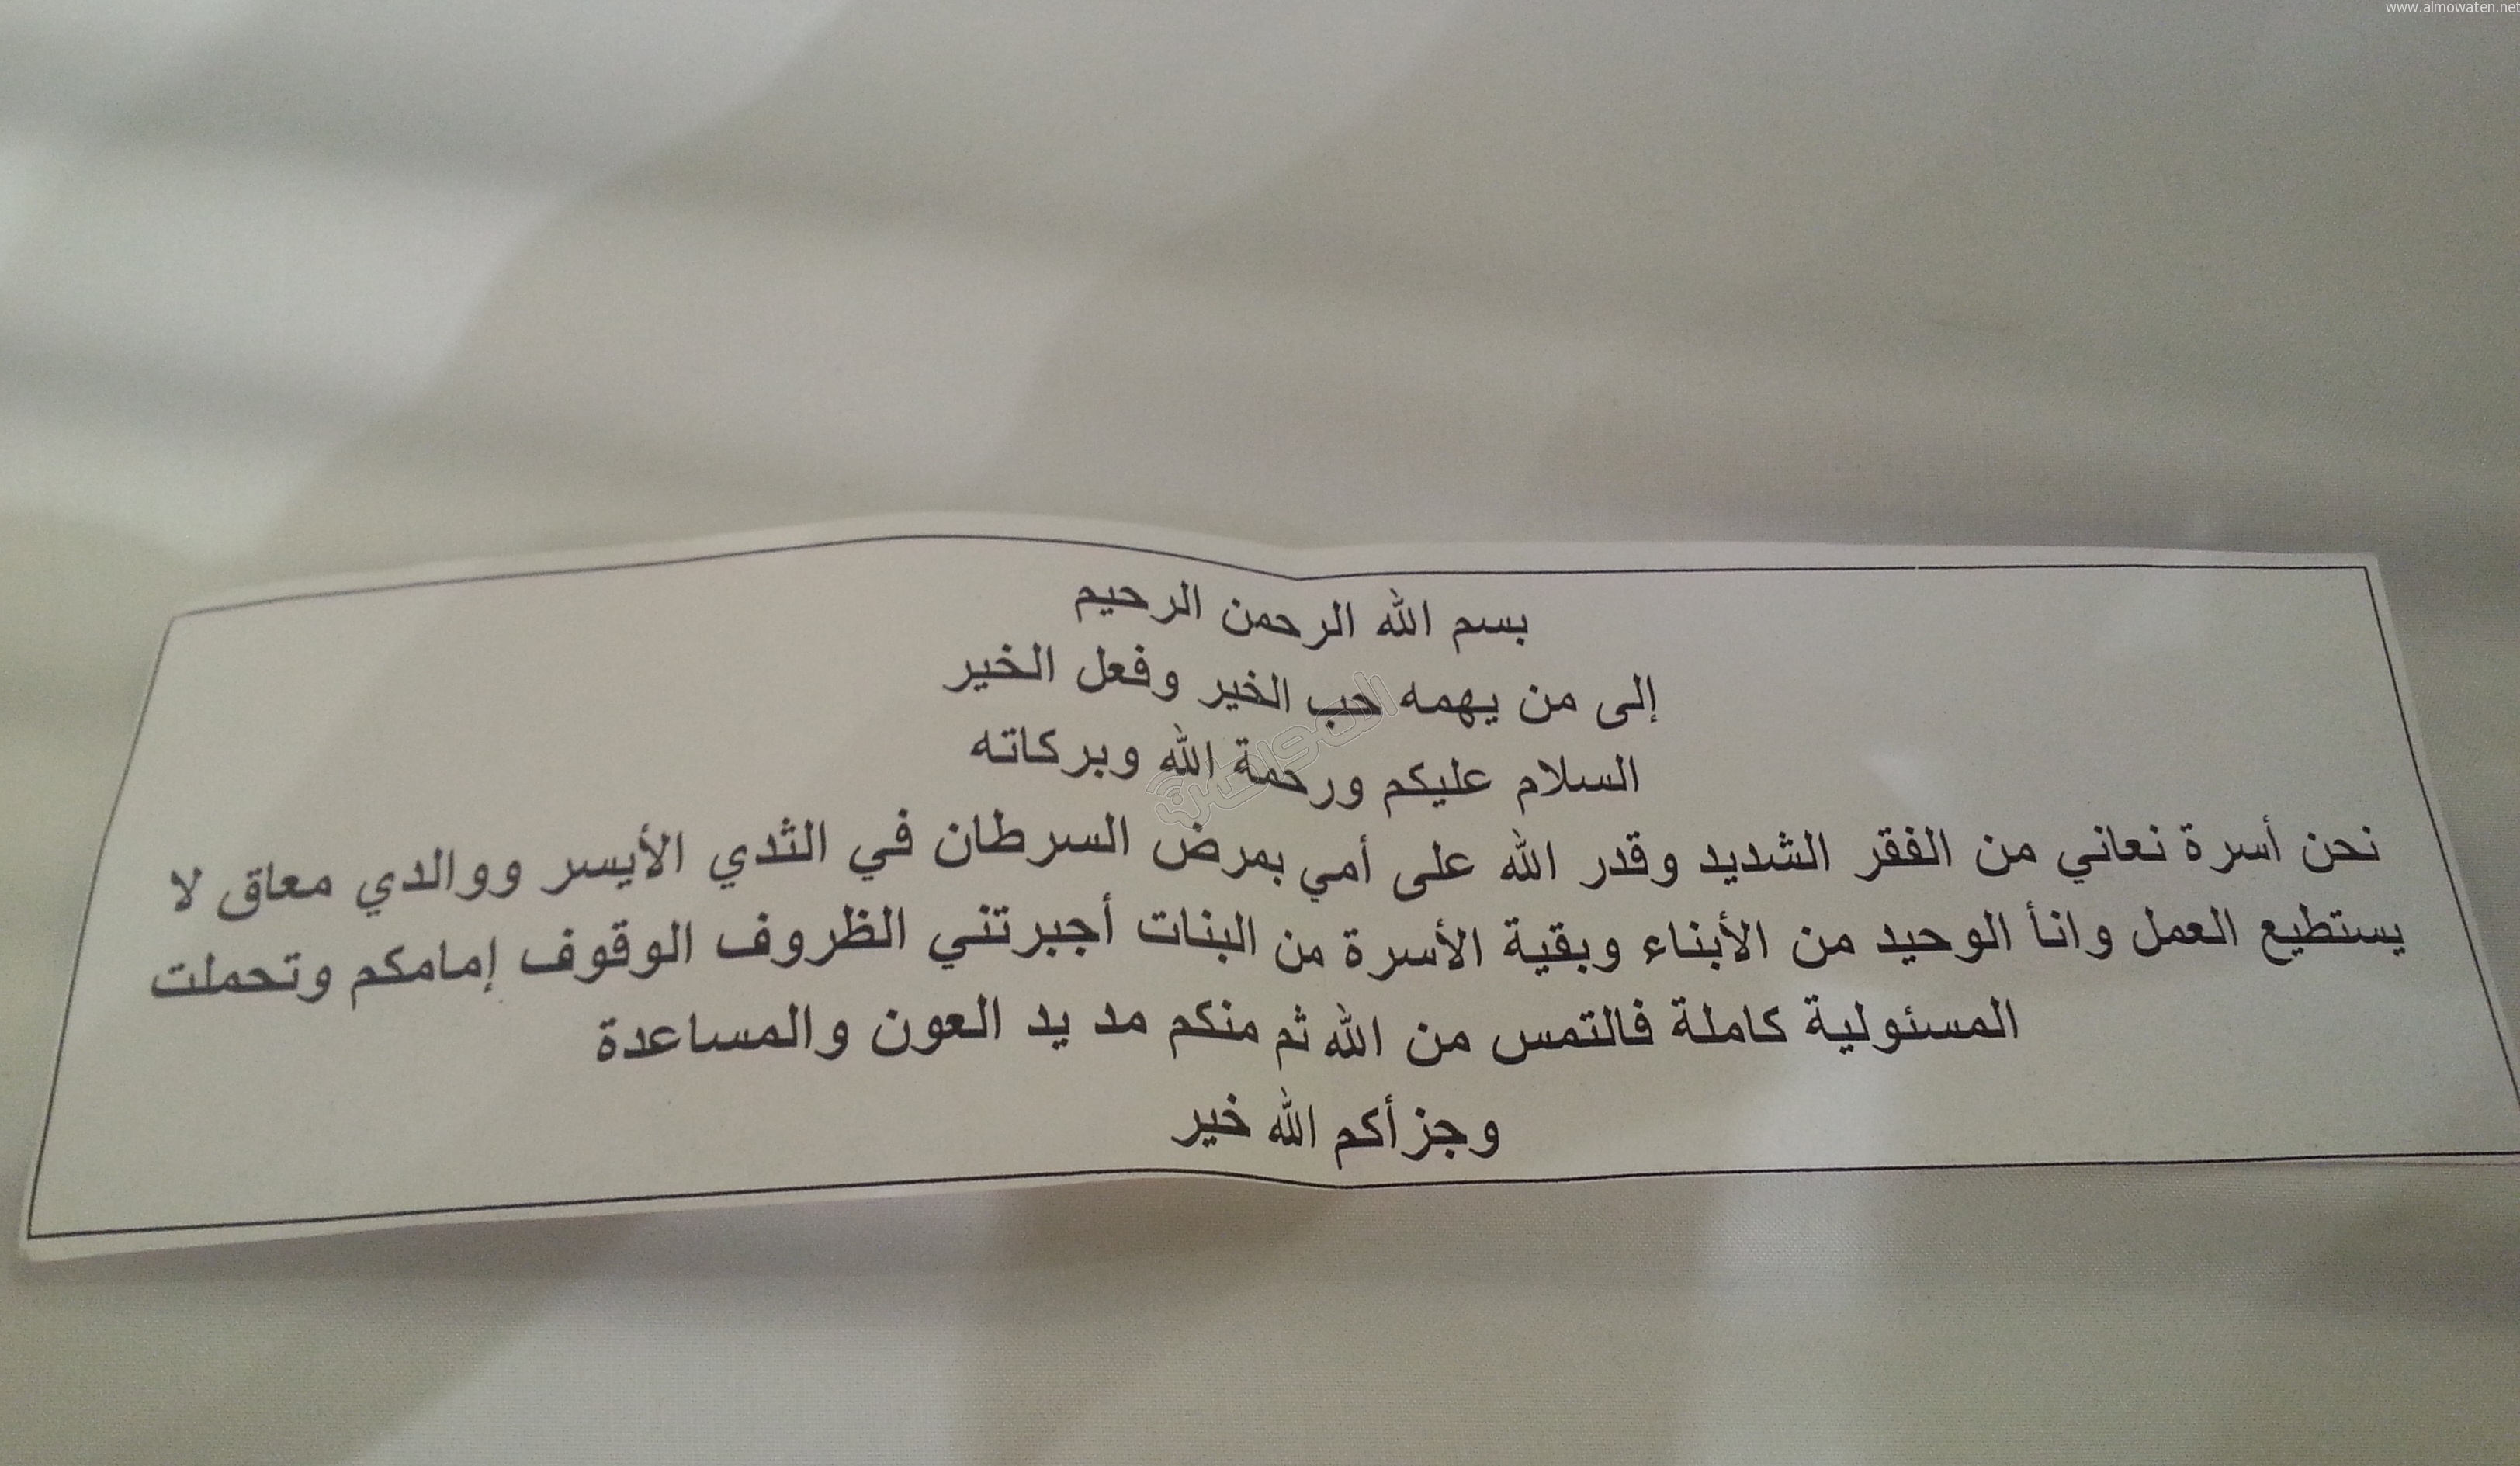 www.almowaten.net
بسم الله الرحمن الرحيم
إلى من يهمه حب الخير وفعل الخير
السلام عليكم ورحمة الله وبركاته
المواطن
نحن أسرة نعاني من الفقر الشديد وقدر الله على أمي بمرض السرطان في الثدي الأيسر ووالدي معاق لا
يستطيع العمل وانأ الوحيد من الأبناء وبقية الأسرة من البنات أجبرتني الظروف الوقوف إمامكم وتحملت
المسئولية كاملة فالتمس من الله ثم منكم مد يد العون والمساعدة
وجزأكم الله خير